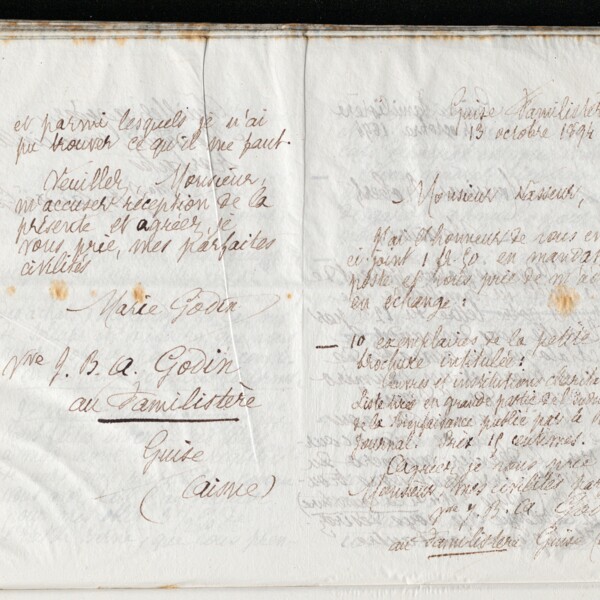 et parmi lesquels je n'ai
pu trouver ce qu'il me faut.
Veuillez, Monsieur,
m'accuser réception de la
présente et agréer, je
vous prie, mes parfaites
civilités
Marie Godin
Vve J. B. A. Godin
au Familistère
Guise
(Aisne)
Guise Familistère
13 octobre 1894
Monsieur Vasseur,
J'ai l'honneur de vous en
ci joint 1 f. 50 en manda
poste et vous prie de m'
en échange :
— 10 exemplaires de la petite
brochure intitulée :
Œuvres et institutions charita
en grande partie de
de la Bienfaisance publié par le
Journal. Prix 15 centimes.
agréer, je vous prie
Monsieur, mes civilités pa
Vve J. B. A. God
au Familistère Guise (